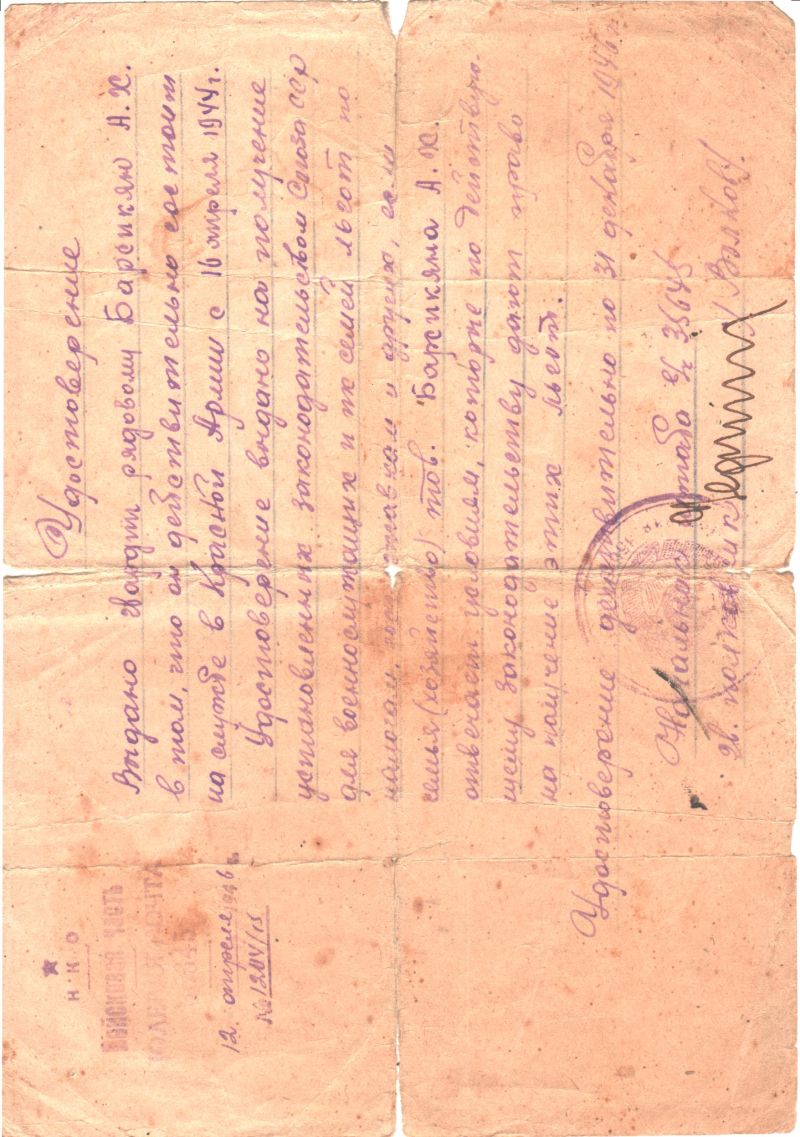 Н К О
ВОЙСКОВАЯ ЧАСТЬ
ПОЛЕВАЯ ПОЧТА
12 апреля 1946 г.
№ 1204/15
Удостоверение
Выдано гвардии рядовому Барсикян А. Х.
в том, что он действительно состоит
на службе в Красной Армии с 16 апреля 1944 г.
Удостоверение выдано на получение
установленных законодательством Союза ССР
для военнослужащих и их семей льгот по
налогам, поставкам и другие, если
семья (хозяйство) тов. Барсикяна А. Х.
отвечает условиям, которые по действую-
щему законодательству дают право
на получение этих льгот.
Удостоверение действительно по 31 декабря 1946 г.
Начальник штаба в/ч 35645
гв. полковник Волков